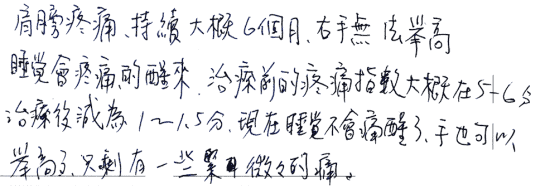 肩膀疼痛、持續大概6個月、右手無法舉高
睡覺會疼痛的醒來、治療前的疼痛指數大概在5-6分
治療後減為1~1.5分、現在睡覺不會痛醒了、手也可以
舉高了、只剩有一些緊 微々的痛。